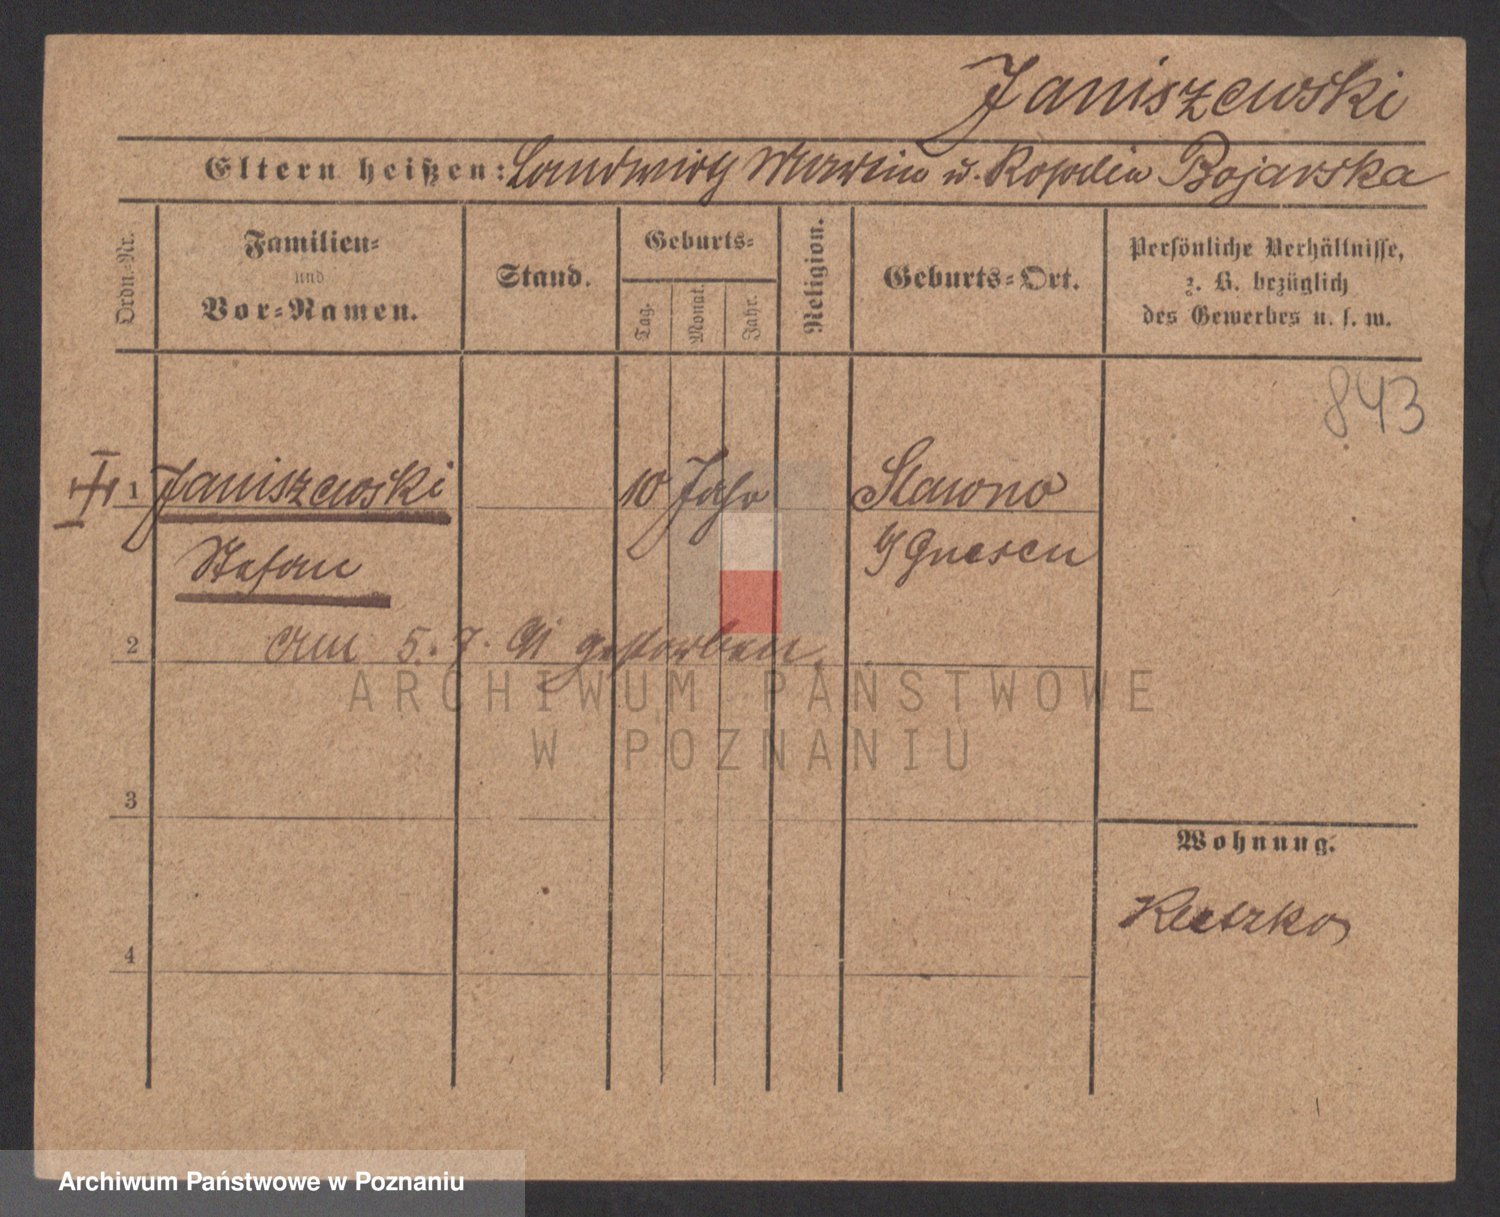 Janiszewski
Eltern heißen: Landwirth Martin u. Rosalia Bojarska
Ordn.-Nr.
Familien-
und
Vor-Namen.
Stand.
Geburts-
Tag.
Monat.
Jahr.
Religion.
Geburts-Ort.
Persönliche Verhältnisse,
z. B. bezüglich
des Gewerbes u. s. w.
843
1 Janiszewski 10 Jahr Slawno
Stefan Gnesen
2
am 5. 7. 91 gestorben.
ARCHIWUM PAŃSTWOWE
W POZNANIU
3
Wohnung.
Kletzko
4
Archiwum Państwowe w Poznaniu